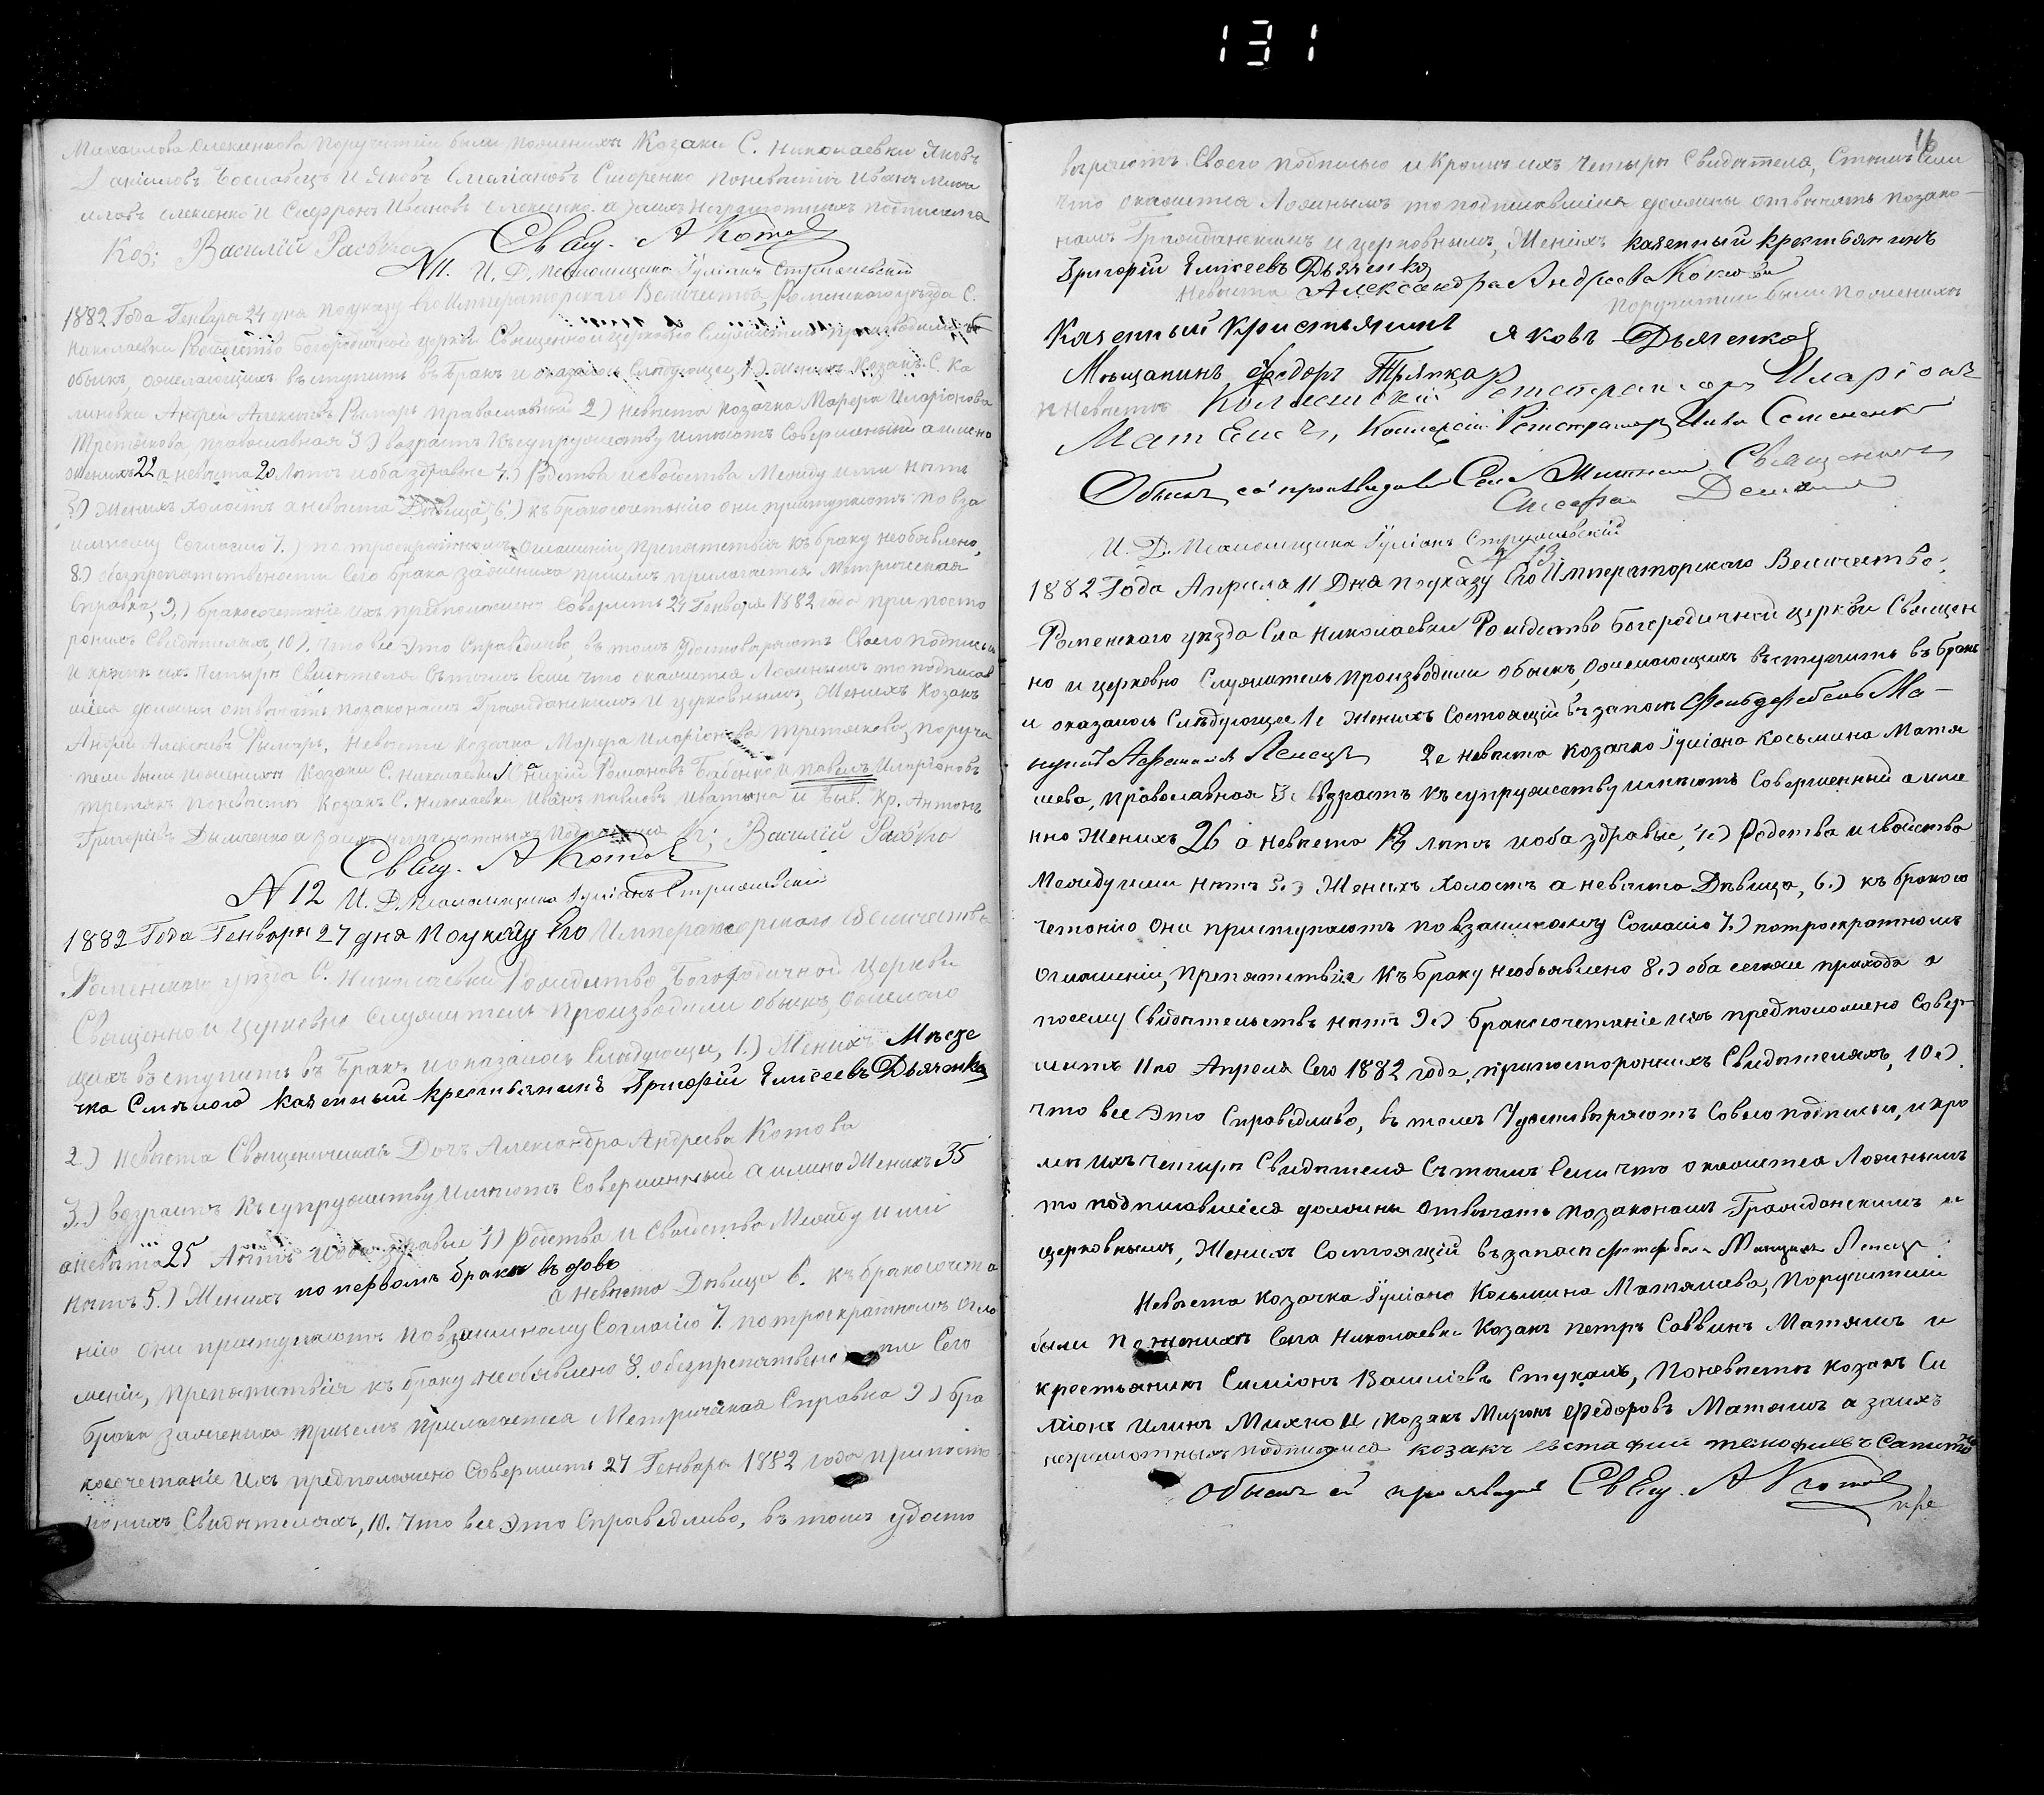 131
Михаилова Олексенкова Поручители были по женихѣ Козаки С. Николаевки Яковъ
Даниловъ и Яковъ Сидоренко по невѣсте Иванъ Миха
иловъ Олексенко и Сафронъ Ивановъ Олексенко. а за ихъ неграмотныхъ подписался
Коз: Василій
СвЕщ. А Котов
N 11. И. Д. Псаломщика Іуліанъ
1882 Года Генваря 24 дня По указу Его Императорскаго Величества, Роменского уѣзда С.
Николаевки Рождество Богородичной церкви Священно и церковно Служители производили
обыскъ, ожелающихъ въступить въ бракъ и оказалось Слѣдующее, 1.) Женихъ Козакъ С. Ка
линовки Андрей Алексѣевъ Рымарь православный 2) невѣста козачка Марфа Иларіонова
Третякова, православная 3.) возрастъ къ супружеству имѣютъ Совершенный а именно
Женихъ 22 а невѣста 20 Лѣтъ и оба здравые 4.) Родства и свойства Между ими нѣтъ
5) Женихъ холостъ а невѣста Дѣвица, 6.) къ бракосочетанію они приступаютъ по вза
имному Согласію 7.) по троекратномъ оглашеніи, Препятствія къ браку необявлено,
8.) обезпрепятствености Сего брака за жениха прилагается Метрическая
Справка, 9.) бракосочетаніе ихъ предположено Совершить 24 Генваря 1882 года при посто
роннихъ Свидѣтеляхъ, 10). что все это Справедливо, въ томъ Удостоверяютъ Своего подписью
и кромѣ ихъ четыри Свидѣтеля Сътемъ Если что окажется Ложнымъ то подписав
шіеся должны отвѣчать по законамъ Гражданскимъ и Церковнымъ, Женихъ Козакъ
Андрей Алексѣевъ Рымарь, Невѣста козачка Марфа Иларіонова Третякова, поручи
тели были по женихѣ Козаки С. Николаевки Романовъ Бабенко и павелъ Иларіоновъ
третяк по невѣсте Козакъ С. Николаевки Иванъ павловъ и Кр. Антонъ
Григоріевъ а за ихъ неграмотныхъ Василій
СвЕщ. А Котов
N 12 И. Д. Псаломщика Іуліанъ
1882 Года Генваря 27 дня По указу Его Императорскаго Величества
Роменского уѣзда С. Николаевки Рождество Богородичной Церкви
Священно и церковно Служители производили обыскъ, ожелаю
щихъ въступить въ Бракъ и оказалось Слѣдующе, 1.) Женихъ Мѣсте
чка Смѣлого казенный крестьянинъ Григорій Елисеевъ Дьяченко
2) Невѣста Священическая Дочь Александра Андреева Котова
3.) возрастъ къ супружеству имѣютъ Совершенный а имено Женихъ 35
а невѣста 25 Лѣтъ и оба здравые 4) родства и свойства Между ими
нѣтъ 5.) Женихъ по первомъ браке въдовъ
а невѣста Дѣвица 6. къ бракосочета
нію они приступаютъ по взаимному Согласію 7. по троекратномъ огла
шеніи, препятствія къ браку необявлено 8. обезпрепятствено сти Сего
брака за жениха при семъ Прилагается Метрическая Справка 9) бра
косочетаніе Ихъ предположено Совершить 27 Генваря 1882 года при посто
роннихъ Свидѣтеляхъ, 10. что все это Справедливо, въ томъ удосто
16
вѣряютъ Своего подписью и Кромѣ ихъ четыри Свидѣтеля, Стемъ Если
что окажется Ложнымъ то подписавшіеся должны отвѣчать по зако-
намъ Гражданскимъ и церковнымъ, Женихъ казенный крестьянинъ
Григорій Елисеевъ Дьяченко
Невѣста Александра Андреева Котова
Поручители были по женихѣ
Казенный Кристьянинъ Яковъ Дьяченко
Мѣщанинъ Федоръ Тряпка
по невѣсте Колежскій Регстраторъ Иларіонъ
Колежскій Регстраторъ
Обыскъ сей производилъ Села Священникъ
И. Д. Псаломщика Іуліанъ
N 13.
1882 Года Апреля 11 Дня по указу Его Императорского Величества.
Роменского уѣзда Сла Николаевки Рождество Богородичной церкви Священ
но и церковно Служитель производили обыскъ, ожелающихъ въступить въ бракъ
и оказалось Слѣдующее 1е Женихъ Состоящій въ запасѣ Фельдфебель Ма-
2е невѣста козачка Іуліана Косьмина Матя
шева, православная 3е возрастъ къ супружеству имѣютъ Совершенный а име
нно Женихъ 26 а невѣста 18 лѣтъ и оба здравые, 4е) родства и свойства
Между ими нѣтъ 5.) Женихъ холостъ а невѣста Дѣвица, 6.) къ бракосо
четанію они приступаютъ по взаимному Согласію 7.) по троекратномъ
оглашеніи, препятствія къ Браку необъявлено 8.) оба сегоже прихода а
посему Свидѣтельствъ нѣтъ 9.) бракосочетаніе ихъ предположено Совер-
шить 11го Апреля Сего 1882 года, при постороннихъ Свидѣтеляхъ, 10.)
что все это Справедливо, въ томъ Удостовѣряютъ Совего подписью, и кро
мѣ ихъ четыри Свидѣтеля Сътемъ Если что окажется Ложнымъ
то подписавшіеся должны отвѣчать по законамъ Гражданскимъ и
церковнымъ, Женихъ Состоящій въ запасѣ
Невѣста козачка Іуліана Косьмина Матяшева, Поручители
были по женихѣ Села Николаевки Козакъ петръ Саввинъ Матяшъ и
крестьянинъ Симіонъ Василіевъ Стукалъ, По невѣсте козакъ Си
міонъ Илинъ Михно и козакъ Миронъ Федоровъ Матяшъ а за ихъ
неграмотныхъ подписался козакъ Евстафий
Обыскъ сей производил СвЕщ. А Котов